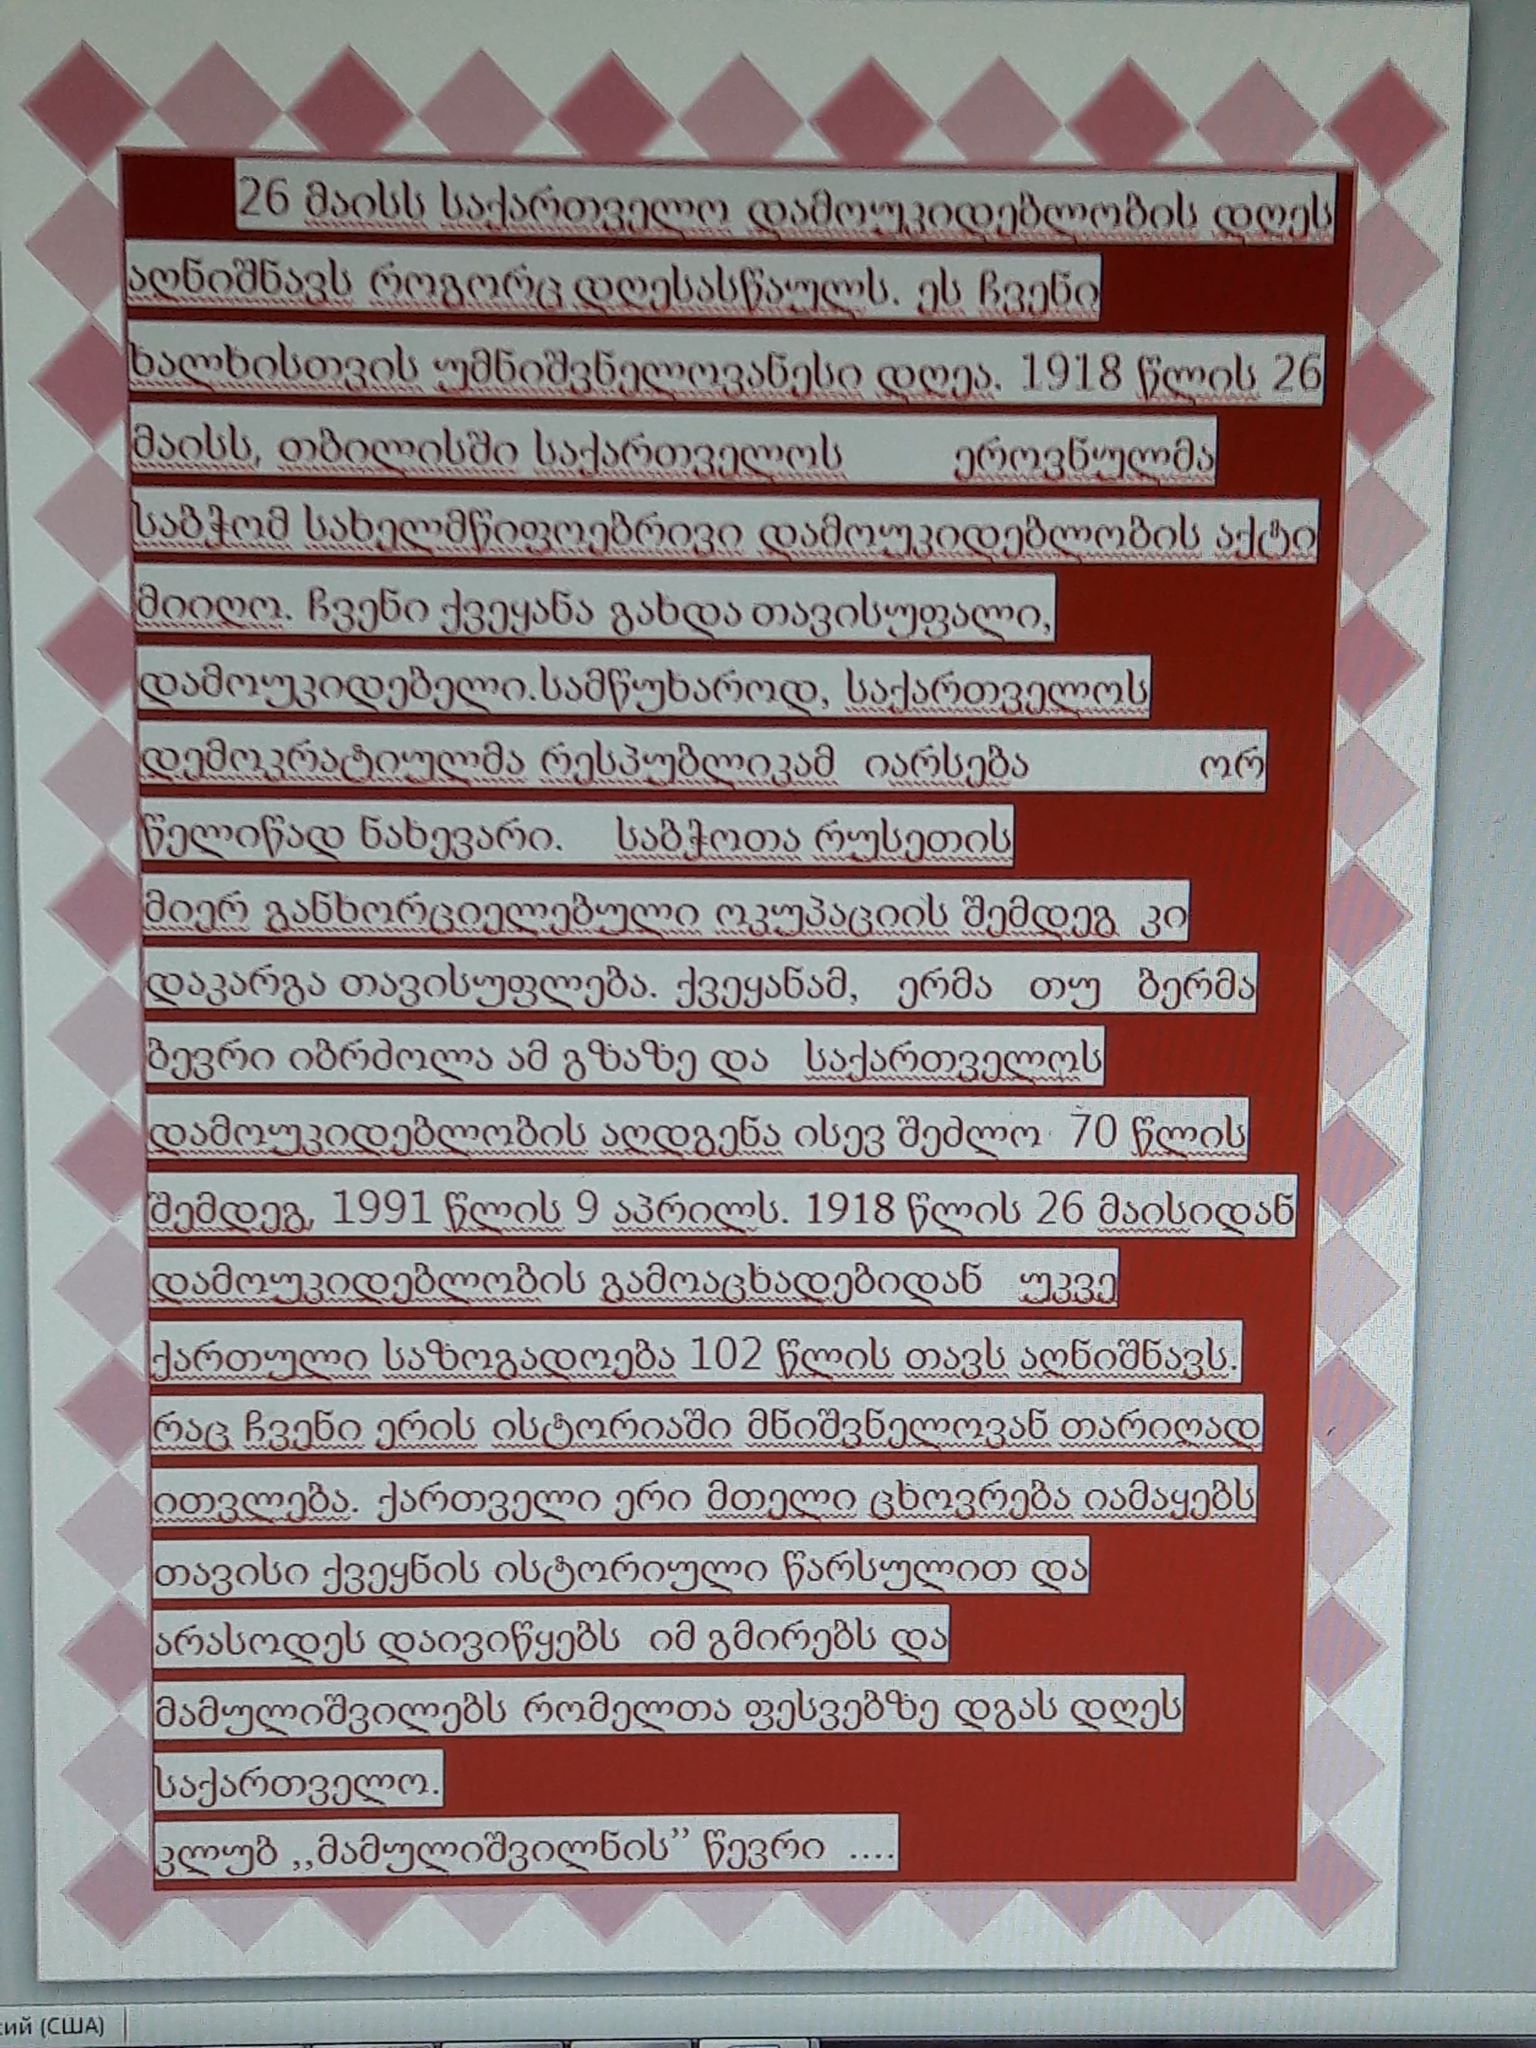 26 მაისს საქართველო დამოუკიდებლობის დღეს
აღნიშნავს როგორც დღესასწაულს. ეს ჩვენი
ხალხისთვის უმნიშვნელოვანესი დღეა. 1918 წლის 26
მაისს, თბილისში საქართველოს ეროვნულმა
საბჭომ სახელმწიფოებრივი დამოუკიდებლობის აქტი
მიიღო. ჩვენი ქვეყანა გახდა თავისუფალი,
დამოუკიდებელი.სამწუხაროდ, საქართველოს
დემოკრატიულმა რესპუბლიკამ იარსება ორ
წელიწად ნახევარი. საბჭოთა რუსეთის
მიერ განხორციელებული ოკუპაციის შემდეგ კი
დაკარგა თავისუფლება. ქვეყანამ, ერმა თუ ბერმა
ბევრი იბრძოლა ამ გზაზე და საქართველოს
დამოუკიდებლობის აღდგენა ისევ შეძლო 70 წლის
შემდეგ, 1991 წლის 9 აპრილს. 1918 წლის 26 მაისიდან
დამოუკიდებლობის გამოაცხადებიდან უკვე
ქართული საზოგადოება 102 წლის თავს აღნიშნავს.
რაც ჩვენი ერის ისტორიაში მნიშვნელოვან თარიღად
ითვლება. ქართველი ერი მთელი ცხოვრება იამაყებს
თავისი ქვეყნის ისტორიული წარსულით და
არასოდეს დაივიწყებს იმ გმირებს და
მამულიშვილებს რომელთა ფესვებზე დგას დღეს
საქართველო.
კლუბ ,,მამულიშვილნის’’ წევრი ....
(США)